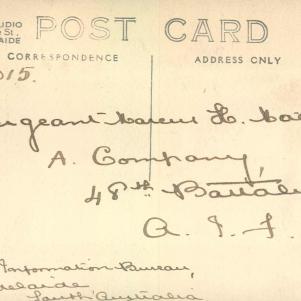 UDIO
St.,
AIDE
POST CARD
CORRESPONDENCE
ADDRESS ONLY
015.
rgeant Marcus H.
A. Company,
48th Battal
A. I. F.
Information Bureau,
delaide
South Australia